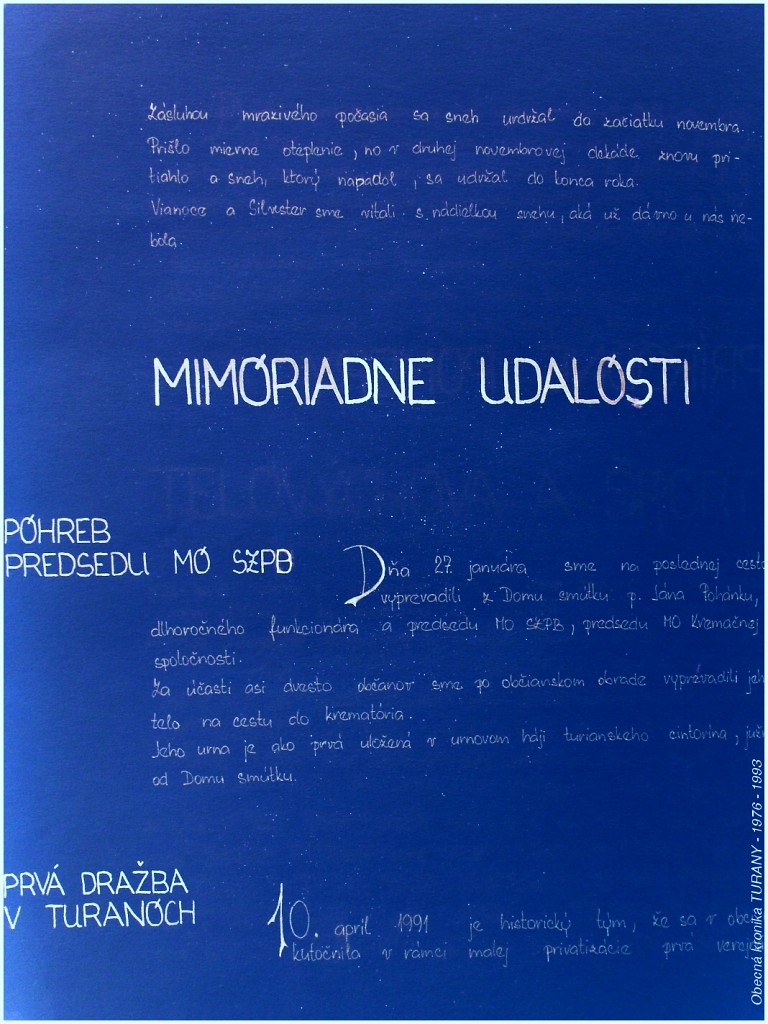 Zásluhou mrazivého počasia sa sneh urdržal do začiatku novembra.
Prišlo mierne oteplenie, no v druhej novembrovej dekáde znovu pri-
tiahlo a sneh, ktorý napadol, sa udržal do konca roka.
Vianoce a Silvester sme vítali s nádielkou snehu, aká už dávno u nás ne-
bola.
MIMORIADNE UDALOSTI
POHREB
PREDSEDU MO SZPB
Dňa 27. januára sme na poslednej ceste
vyprevadili z Domu smútku p. Jána Pohánku,
dlhoročného funkcionára a predsedu MO SZPB, predsedu MO Kremačnej
spoločnosti.
Za účasti asi dvesto občanov sme po občianskom obrade vyprevadili jeh
telo na cestu do krematória.
Jeho urna je ako prvá uložená v urnovom háji turianskeho cintorína, juž
od Domu smútku.
PRVÁ DRAŽBA
V TURANOCH
10. apríl 1991 je historický tým, že sa v obc
kutočnila v rámci malej privatizácie prvá verej
Obecná kronika TURANY - 1976 - 1993